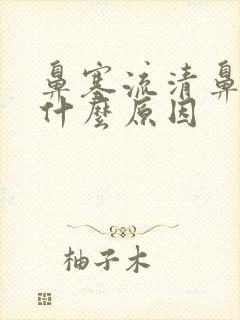 鼻塞流清鼻
什麼原因
柚子木